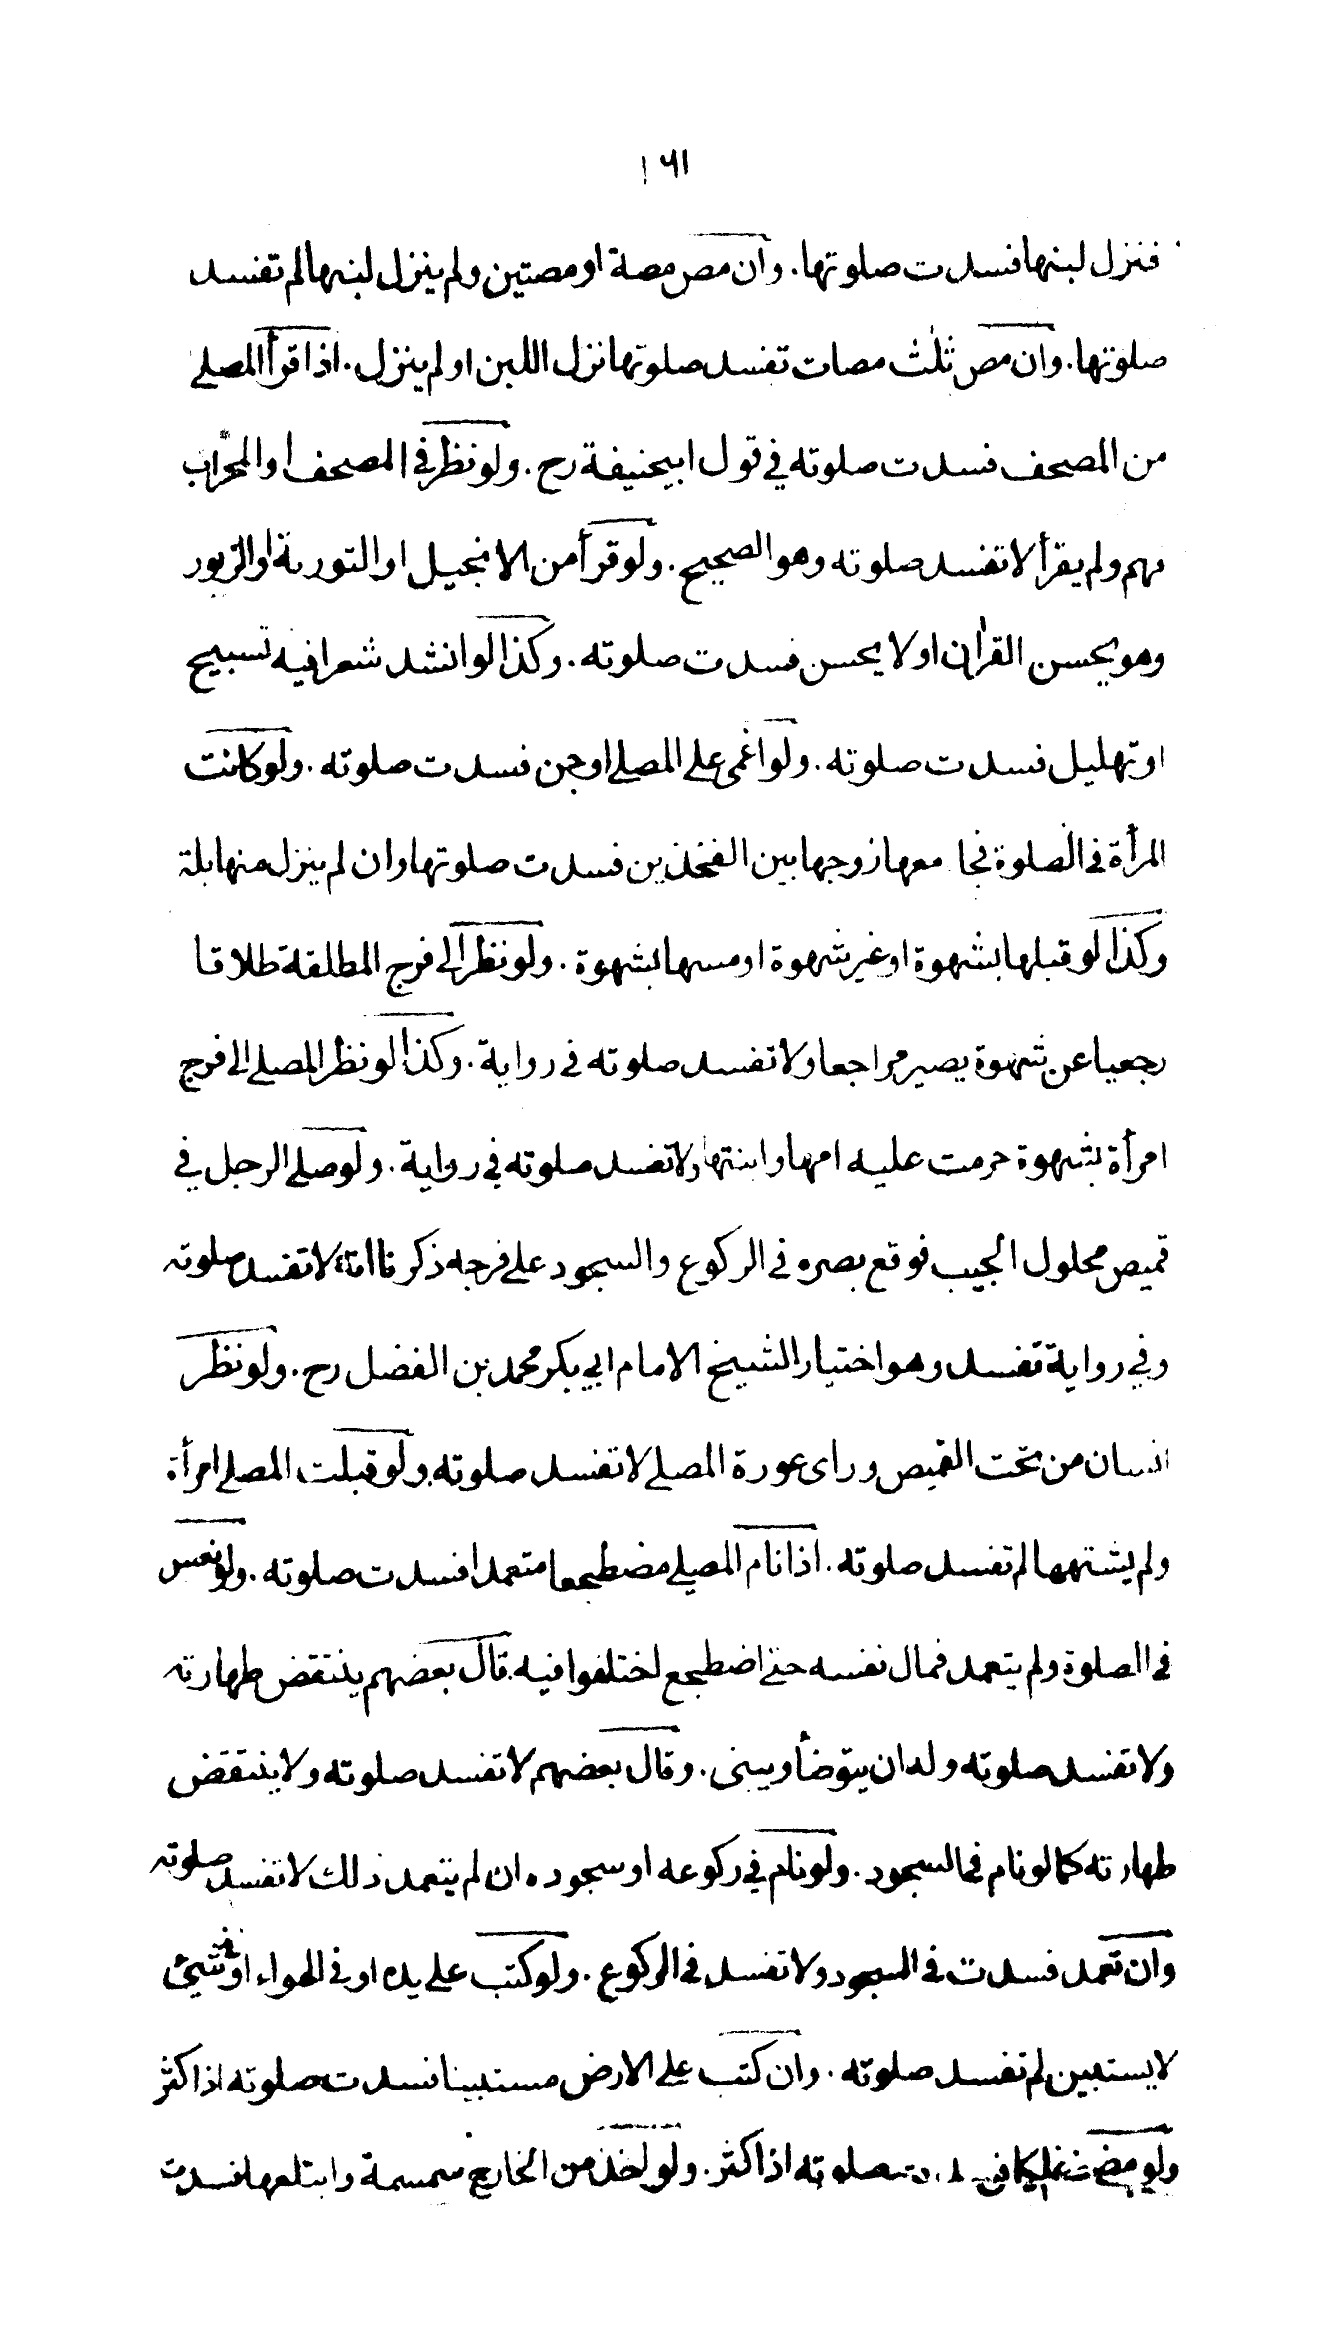 ١٦١
فنزل لبنها فسدت صلوتها. وان مص مصة او مصتين ولم ينزل لبنها لم تفسد
صلوتها. وان مص ثلث مصات تفسد صلوتها نزل اللبن او لم ينزل. اذا قرأ المصلے
من المصحف فسدت صلوته في قول ابيحنيفة رح. ولو نظر في المصحف او المحراب
مهم ولم يقرأ لا تفسد صلوته وهو الصحيح. ولو قرأ من الانجيل او التورىة او الزبور
وهو يحسن القرآن او لا يحسن فسدت صلوته. وكذا لو انشد شعرا فيه تسبيح
او تهليل فسدت صلوته. ولو اغمى علے المصلے او جن فسدت صلوته. ولو كانت
المرأة في الصلوة فجا معها زوجها بين الفخذين فسدت صلوتها وان لم ينزل منها بلة
وكذا لو قبلها بشهوة او غير شهوة او مسها بشهوة. ولو نظر الى فرج المطلقة طلاقا
رجعيا عن شهوة يصير مراجعا ولا تفسد صلوته في رواية. وكذا لو نظر المصلے الى فرج
امرأة بشهوة حرمت عليه امها وابنتها ولا تفسد صلوته في رواية. ولو صلے الرجل في
قميص محلول الجيب فوقع بصره في الركوع والسجود علے فرجه ذكر لا تفسد صلوته
وفي رواية تفسد وهو اختيار الشيخ الامام ابي بكر محمد بن الفضل رح. ولو نظر
انسان من تحت القميص وراى عورة المصلے لا تفسد صلوته. ولو قبلت المصلے امرأة
ولم يشتهها لم تفسد صلوته. اذا نام المصلے مضطجعا متعمدا فسدت صلوته. ولو نعس
في الصلوة ولم يتعمد فمال نفسه حتے اضطجع اختلفوا فيه. قال بعضهم ينتقض طهارته
ولا تفسد صلوته وله ان يتوضأ ويبنى. وقال بعضهم لا تفسد صلوته ولا ينتقض
طهارته كما لو نام في السجود. ولو نام في ركوعه او سجوده ان لم يتعمد ذلك لا تفسد صلوته
وان تعمد فسدت في السجود ولا تفسد في الركوع. ولو كتب علے يده او في الهواء او في شيئ
لا يستبين لم تفسد صلوته. وان كتب علے الارض مستبينا فسدت صلوته اذا كثر
ولو مضغ صلوته اذا كثر. ولو اخذ من الخارج سمسمة وابتلعها فسدت